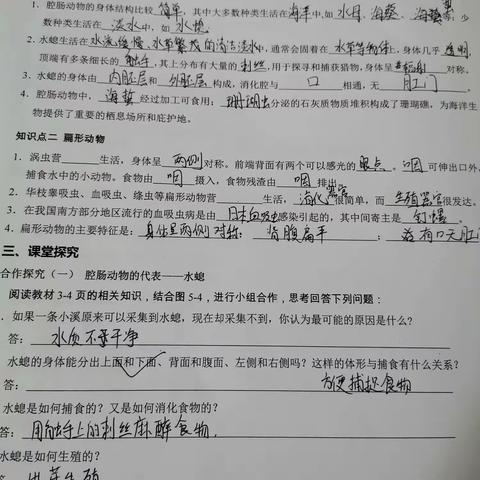 1. 腔肠动物的身体结构比较 简单,其中大多数种类生活在海洋中,如 水母、海葵、海蜇等,少
数种类生活在 淡水 中,如 水螅
2. 水螅生活在水流缓慢、水草繁茂的清洁淡水中,通常会固着在 水草等物体上,身体几乎 透明
顶端有多条细长的 触手,其上分布有大量的刺丝,用于探寻和捕获猎物,身体呈 辐射 对称。
3. 水螅的身体由 内胚层 和 外胚层 构成,消化腔与 口 相通,无 肛门
4. 腔肠动物中, 海蜇 经过加工可食用; 珊瑚虫分泌的石灰质物质堆积构成了珊瑚礁,为海洋生
物提供了重要的栖息场所和庇护地。
知识点二 扁形动物
1. 涡虫营 生活,身体呈 两侧 对称。前端背面有两个可以感光的 眼点。 咽 可伸出口外,
捕食水中的小动物。食物由 咽 摄入,食物残渣由 咽 排出
2. 华枝睾吸虫、血吸虫、绦虫等扁形动物营 生活,消化器官很简单,而 生殖器官很发达。
3. 在我国南方部分地区流行的血吸虫病是由 日本血吸虫感染引起的,其中间寄主是 钉螺。
4. 扁形动物的主要特征是: 身体呈两侧对称; 背腹扁平 ; 没有口无肛门
三、课堂探究
合作探究(一) 腔肠动物的代表——水螅
阅读教材 3-4 页的相关知识,结合图 5-4,进行小组合作,思考回答下列问题:
. 如果一条小溪原来可以采集到水螅,现在却采集不到,你认为最可能的原因是什么?
答: 水质不干净
水螅的身体能分出上面和下面、背面和腹面、左侧和右侧吗?这样的体形与捕食有什么关系?
答: 方便捕捉食物
水螅是如何捕食的?又是如何消化食物的?
答: 用触手上的刺丝麻醉食物.
水螅是如何生殖的?
出芽生殖